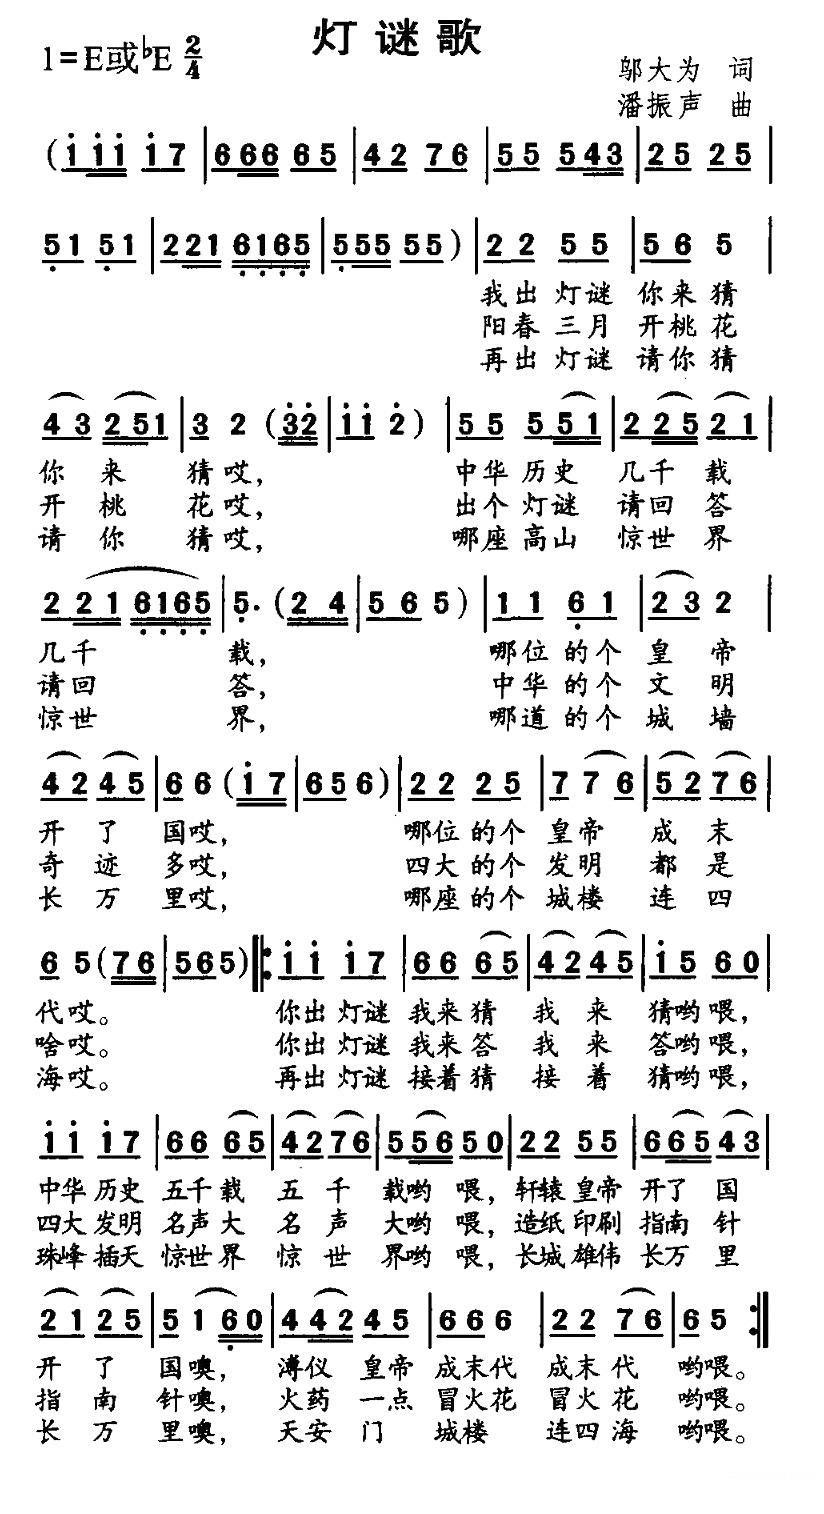 灯谜歌
1=E或♭E 2/4
邬大为 词
潘振声 曲
(i i i i 7 | 6 6 6 6 5 | 4 2 7 6 | 5 5 5 4 3 | 2 5 2 5 |
5 1 5 1 | 2 2 1 6 1 6 5 | 5 5 5 5 5 ) | 2 2 5 5 | 5 6 5 |
我出 灯谜 你来猜
阳春 三月 开桃花
再出 灯谜 请你猜
4 3 2 5 1 | 3 2 ( 3 2 | i i 2 ) | 5 5 5 5 1 | 2 2 5 2 1 |
你 来 猜哎， 中华 历史 几千 载
开 桃 花哎， 出个 灯谜 请回 答
请 你 猜哎， 哪座 高山 惊世 界
2 2 1 6 1 6 5 | 5. ( 2 4 | 5 6 5 ) | 1 1 6 1 | 2 3 2 |
几千 载， 哪位 的个 皇 帝
请回 答， 中华 的个 文 明
惊世 界， 哪道 的个 城 墙
4 2 4 5 | 6 6 ( i 7 | 6 5 6 ) | 2 2 2 5 | 7 7 6 | 5 2 7 6 |
开 了 国哎， 哪位 的个 皇帝 成 末
奇 迹 多哎， 四大 的个 发明 都 是
长 万 里哎， 哪座 的个 城楼 连 四
6 5 ( 7 6 | 5 6 5 ) ‖: i i i 7 | 6 6 6 5 | 4 2 4 5 | i 5 6 0 |
代哎。 你出 灯谜 我来猜 我 来 猜哟 喂，
啥哎。 你出 灯谜 我来答 我 来 答哟 喂，
海哎。 再出 灯谜 接着猜 接 着 猜哟 喂，
i i i 7 | 6 6 6 5 | 4 2 7 6 | 5 5 6 5 0 | 2 2 5 5 | 6 6 5 4 3 |
中华 历史 五千载 五 千 载哟 喂， 轩辕 皇帝 开了 国
四大 发明 名声大 名 声 大哟 喂， 造纸 印刷 指南 针
珠峰 插天 惊世界 惊 世 界哟 喂， 长城 雄伟 长万 里
2 1 2 5 | 5 1 6 0 | 4 4 2 4 5 | 6 6 6 6 | 2 2 7 6 | 6 5 :‖
开 了 国噢， 溥仪 皇帝 成末代 成末代 哟喂。
指 南 针噢， 火药 一点 冒火花 冒火花 哟喂。
长 万 里噢， 天安 门 城楼 连四海 哟喂。